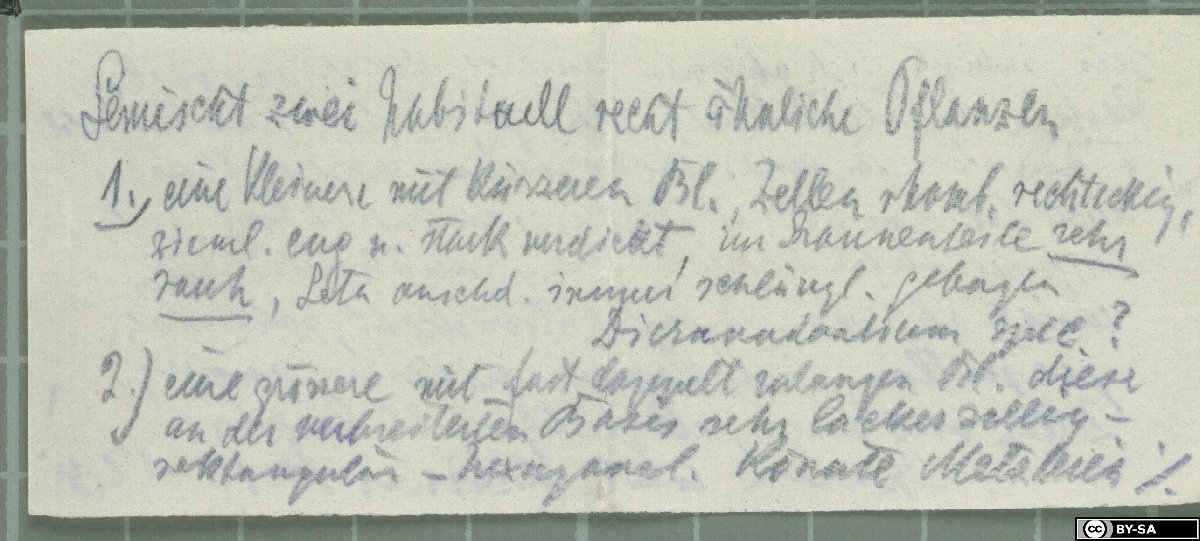 Gemischt zwei habituell recht ähnliche Pflanzen
1., eine kleinere mit kürzeren Bl., Zellen rhomb. rechteckig,
zieml. eng u. stark verdickt, im Grannenteile sehr
rauh, Seta anschd. immer schlängl. gebogen
Dicranodontium spec.?
2.) eine grössere mit fast doppelt solangen Bl. diese
an der verbreiterten Basis sehr locker zellig -
rektangulär - hexagonal. Könnte sein ./.
BY-SA